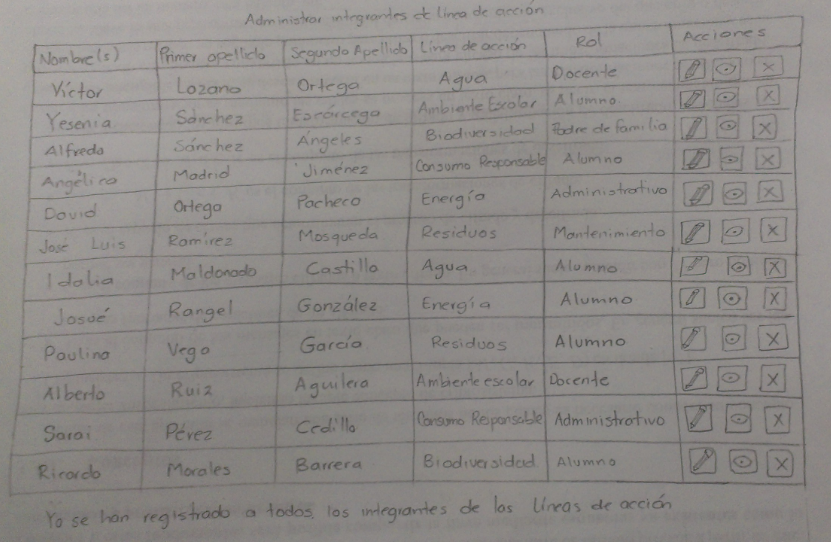 Administrar integrantes de línea de acción
Nombre(s) Primer apellido Segundo Apellido Línea de acción Rol Acciones
Víctor Lozano Ortega Agua Docente
Yesenia Sánchez Escárcega Ambiente Escolar Alumno
Alfredo Sánchez Ángeles Biodiversidad Padre de familia
Angélica Madrid Jiménez Consumo Responsable Alumno
David Ortega Pacheco Energía Administrativo
José Luis Ramírez Mosqueda Residuos Mantenimiento
Idalia Maldonado Castillo Agua Alumno
Josué Rangel González Energía Alumno
Paulina Vega García Residuos Alumno
Alberto Ruiz Aguilera Ambiente escolar Docente
Sarai Pérez Cedillo Consumo Responsable Administrativo
Ricardo Morales Barrera Biodiversidad Alumno
Ya se han registrado a todos los integrantes de las líneas de acción